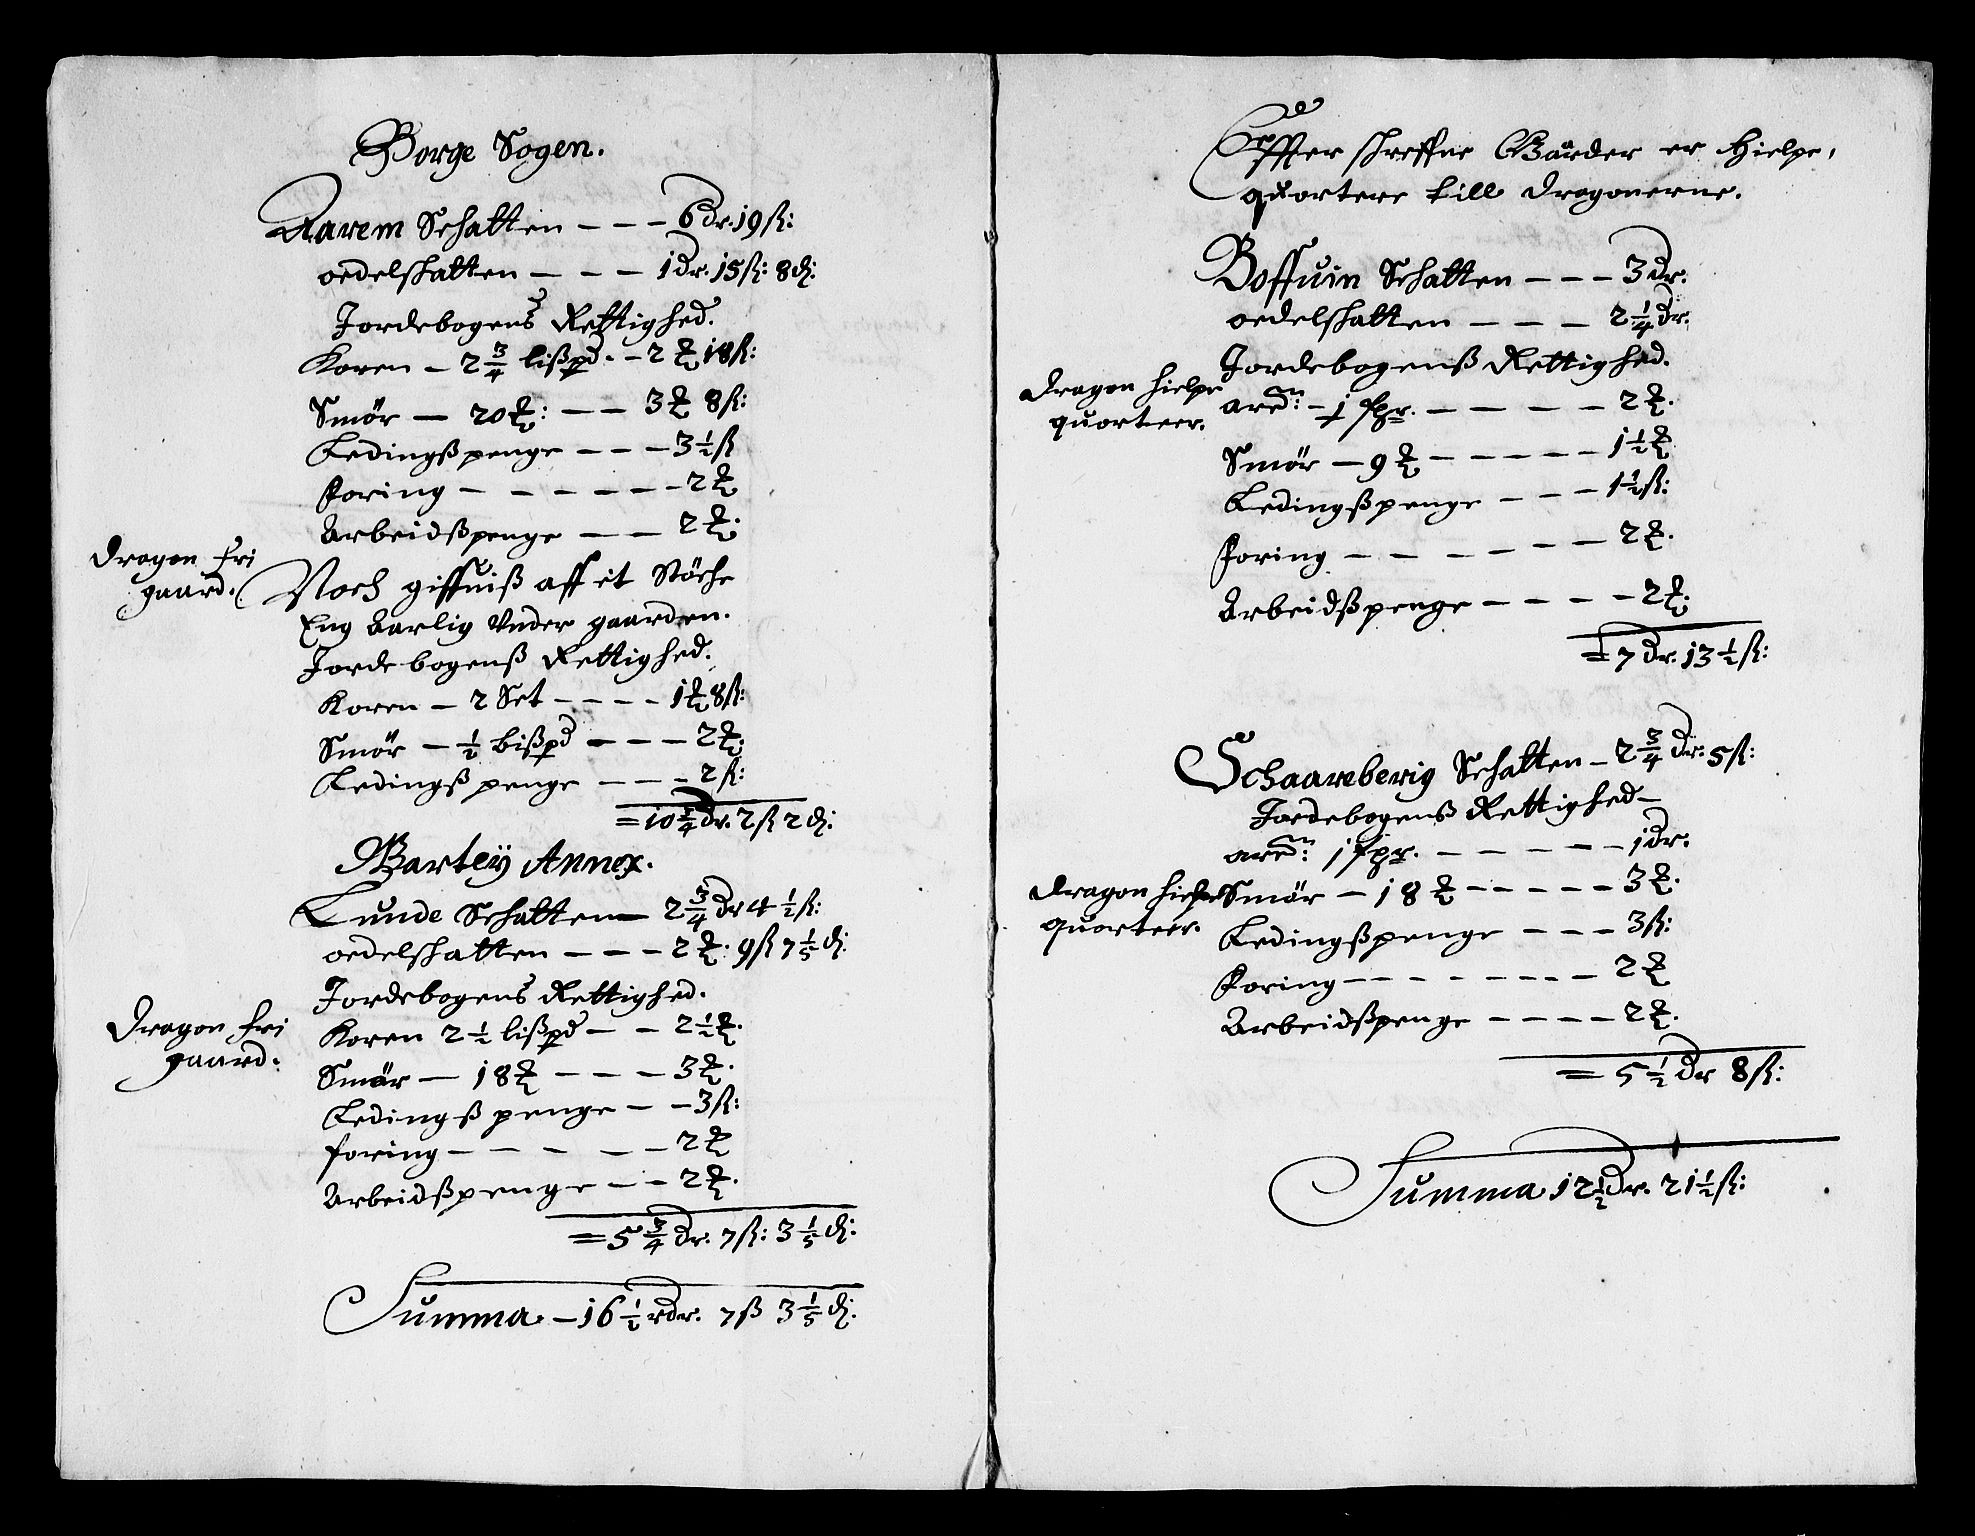 Borge Sogen.
Aarem Schatten - - - 6 dr. 19 ß:
oedelskatten - - - 1 dr. 15 ß: 8 d:
Jordebogens Rettighed.
Koren - 2 3/4 lißpd. - 2 ℔ 18 ß:
Smör - 20 ℔: - - 3 ℔ 8 ß:
Ledingßpenge - - - 3 1/2 ß
Foring - - - - - - 2 ℔
Arbeidßpenge - - 2 ℔:
dragon fri
gaard.
Noch giffuiß aff et Støche
Eng Aarlig Vnder gaarden.
Jordebogenß Rettighed.
Koren - 2 Set - - - - 1 ℔ 8 ß:
Smör - 1/2 bißpd - - - 2 ℔:
Ledingßpenge - - - 2 ß:
= 10 3/4 dr. 2 ß 2 d:
Warteÿ Annex.
Lunde Schatten - 2 3/4 dr 4 1/2 ß:
oedelskatten - - - 2 ℔. 9 ß 7 1/5 d:
Jordebogens Rettighed.
dragon fri
gaard:
Koren 2 1/2 lißpd - - 2 1/2 ℔.
Smør - 18 ℔ - - - 3 ℔.
Ledingßpenge - - 3 ß:
foring - - - - - 2 ℔
Arbeidßpenge - - 2 ℔.
= 5 3/4 dr. 7 ß: 3 1/5 d:
Summa. - 16 1/2 rdr. 7 ß 3 1/5 d:
Effter skreffne Gaarder er Hielpe,
quartere till dragonerne.
Boffuin Schatten - - - 3 dr.
oedelskatten - - - 2 1/4 dr.
Jordebogenß Rettighed.
dragon hielpe
quarteer.
ared:n - 1 spr. - - - - - 2 ℔.
Smør - 9 ℔ - - - - - - 1 1/2 ℔
Ledingßpenge - - - 1 1/2 ß:
Foring - - - - - - - 2 ℔.
Arbeidßpenge - - - - 2 ℔.
= 7 dr. 13 1/2 ß:
Schaareberig Schatten - 2 3/4 dr: 5 ß:
Jordebogenß Rettighed -
ared:n 1 spr. - - - - - 1 dr.
dragon hielpe
quarteer.
Smør - 18 ℔ - - - - - 3 ℔.
Ledingßpenge - - - 3 ß:
Foring - - - - - - - - 2 ℔
Arbeidßpenge - - - - 2 ℔.
= 5 1/2 dr 8 ß:
Summa 12 1/2 dr. 21 1/2 ß: